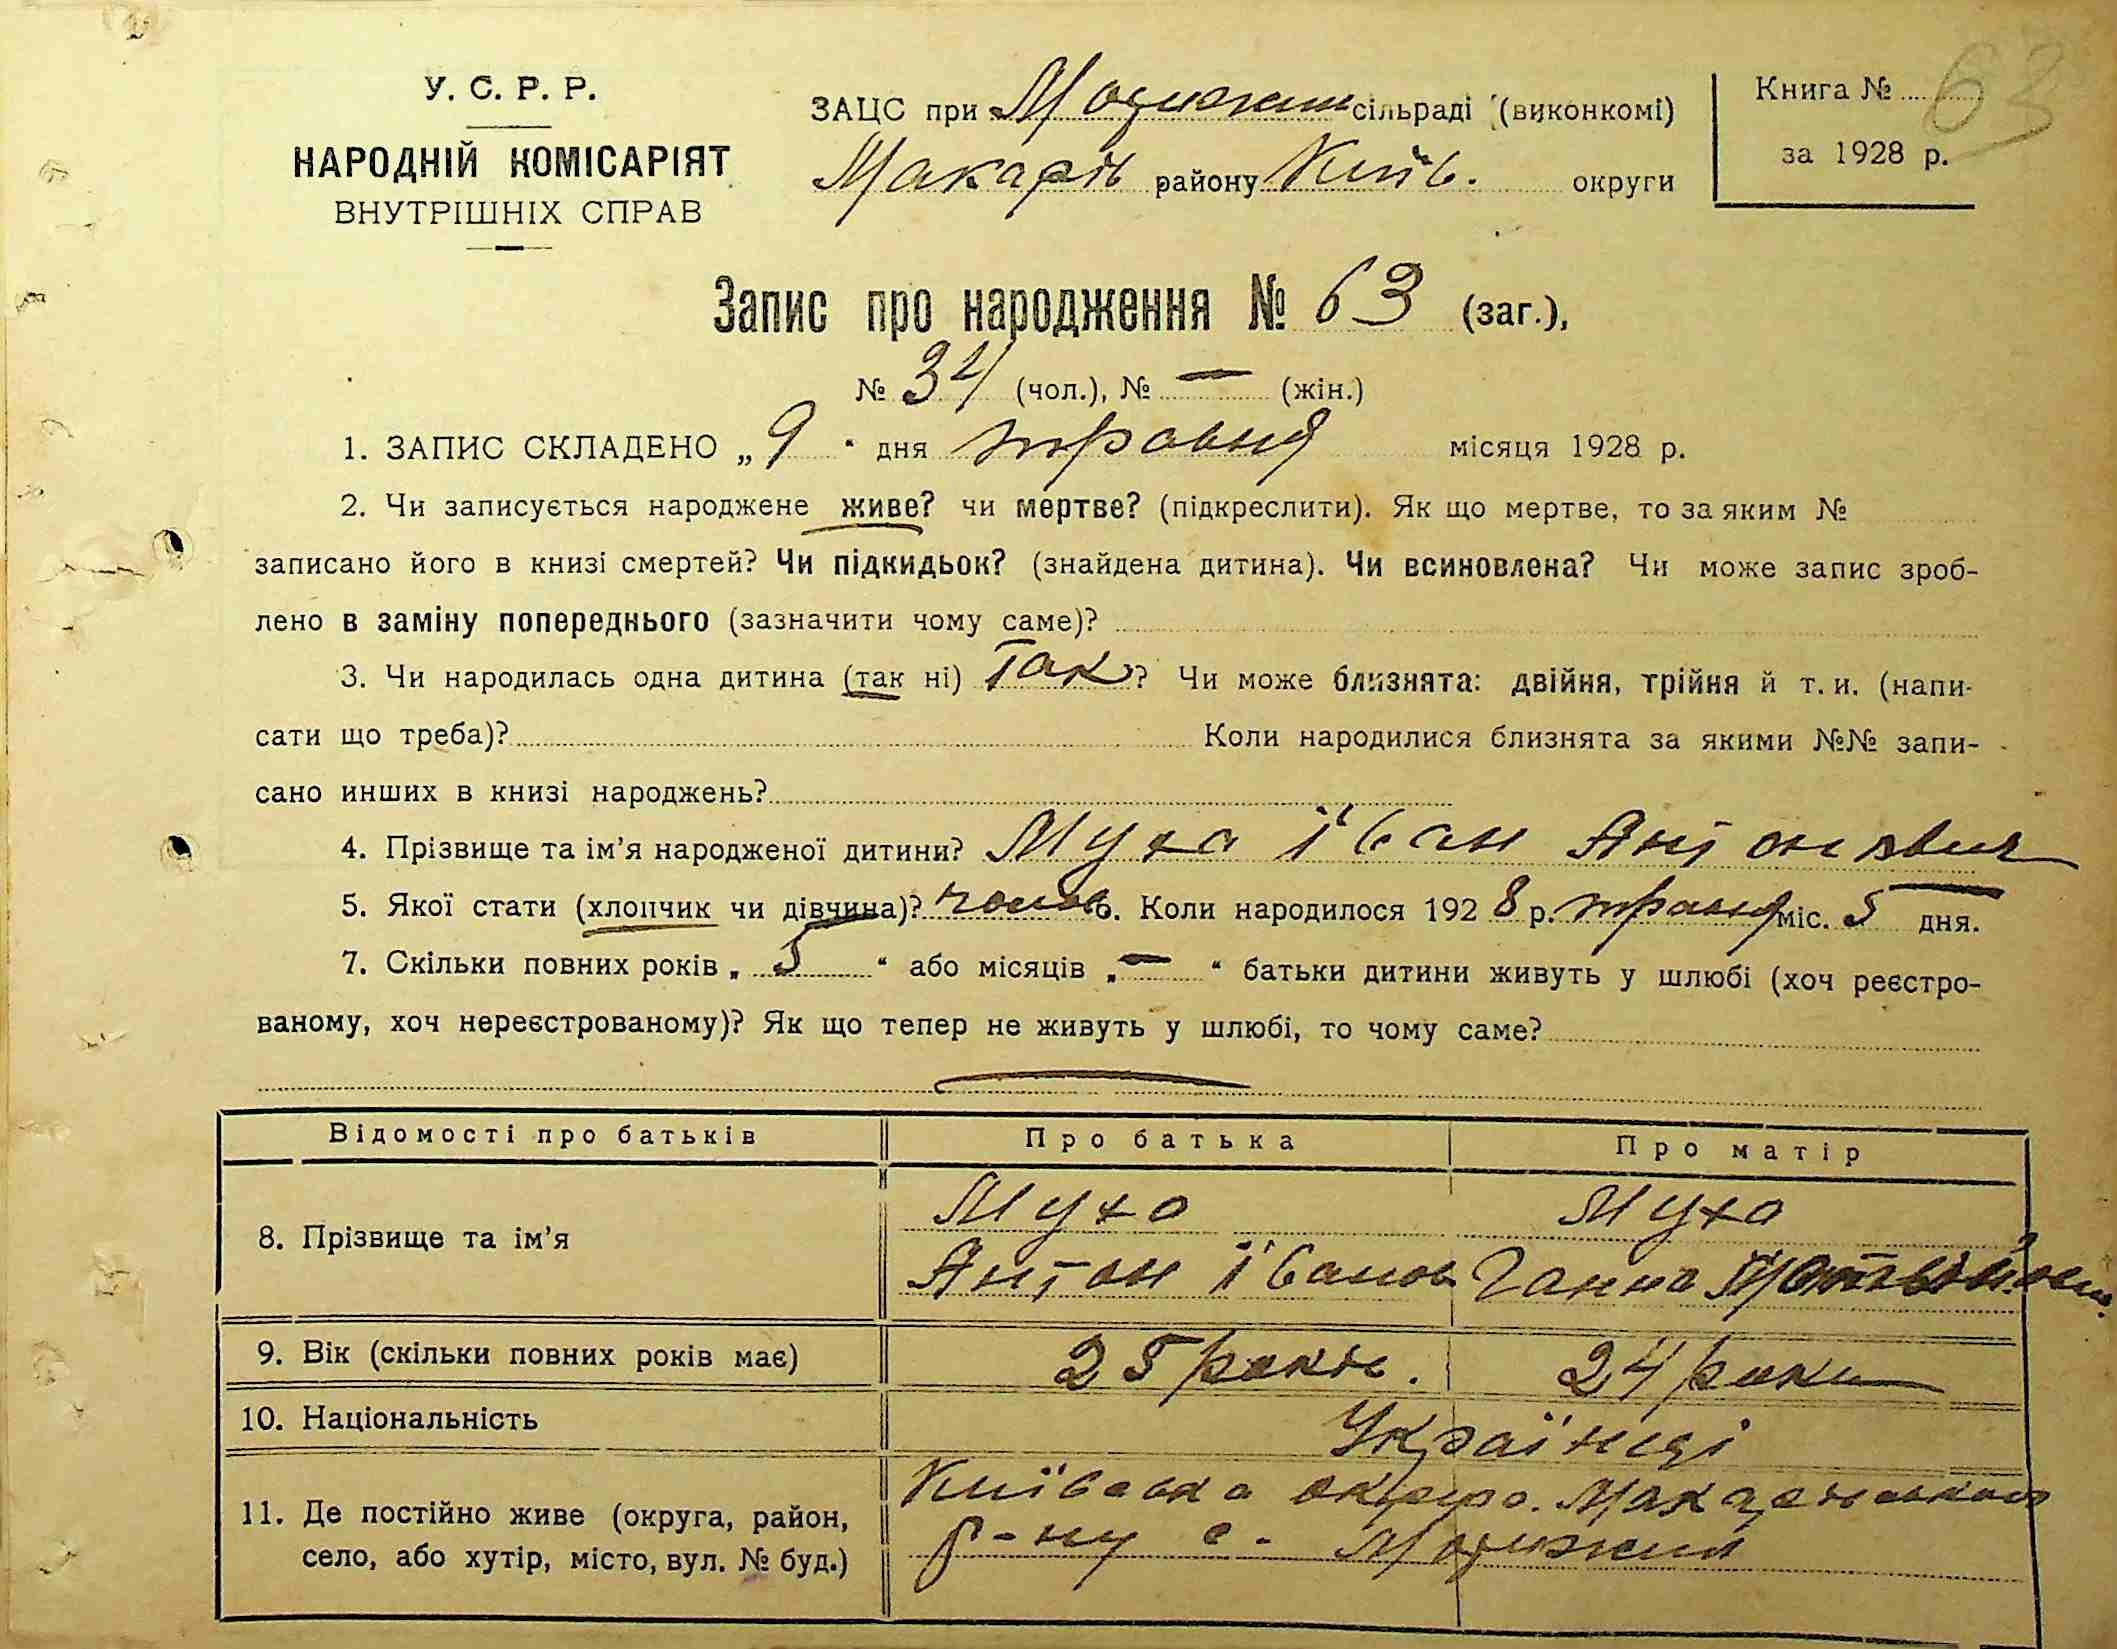 У. С. Р. Р.
НАРОДНІЙ КОМІСАРІЯТ
ВНУТРІШНІХ СПРАВ
ЗАЦС при Мотижин сільраді (виконкомі)
Макарів району Київ. округи
Книга № 63
за 1928 р.
Запис про народження № 63 (заг.),
№ 34 (чол.), № — (жін.)
1. ЗАПИС СКЛАДЕНО „9“ дня травня місяця 1928 р.
2. Чи записується народжене живе? чи мертве? (підкреслити). Як що мертве, то за яким №
записано його в книзі смертей? Чи підкидьок? (знайдена дитина). Чи всиновлена? Чи може запис зроб-
лено в заміну попереднього (зазначити чому саме)?
3. Чи народилась одна дитина (так ні) Так? Чи може близнята: двійня, трійня й т. и. (напи-
сати що треба)? Коли народилися близнята за якими №№ запи-
сано инших в книзі народжень?
4. Прізвище та ім’я народженої дитини? Муха Іван Антонович
5. Якої стати (хлопчик чи дівчина)? чолов 6. Коли народилося 1928 р. травня міс. 5 дня.
7. Скільки повних років „5“ або місяців „—“ батьки дитини живуть у шлюбі (хоч реєстро-
ваному, хоч нереєстрованому)? Як що тепер не живуть у шлюбі, то чому саме?
Відомості про батьків Про батька Про матір
8. Прізвище та ім’я
Муха Муха
Антон Іванов Ганна
9. Вік (скільки повних років має) 25 років. 24 роки
10. Національність Українці
11. Де постійно живе (округа, район,
село, або хутір, місто, вул. № буд.)
Київська округа. Макарівського
р-ну с. Мотижин